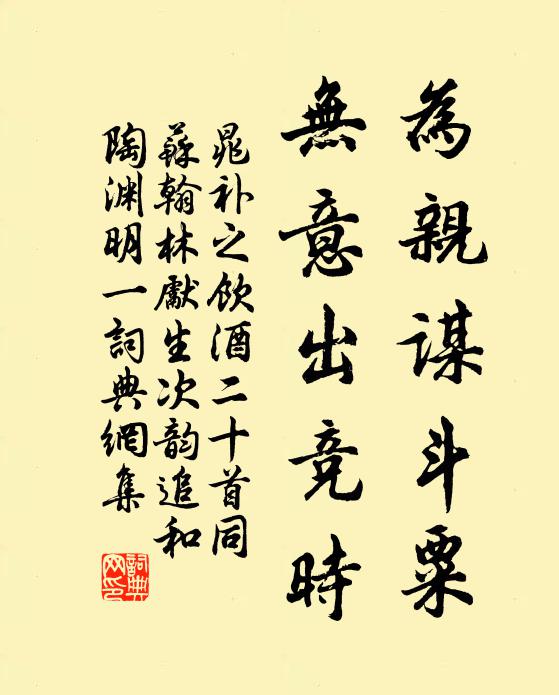 為親謀斗粟
無意出竞時
晁补之飲酒二十首同
蘇翰林獻生次韵追和
陶渊明一詞典網集
詞典
网印